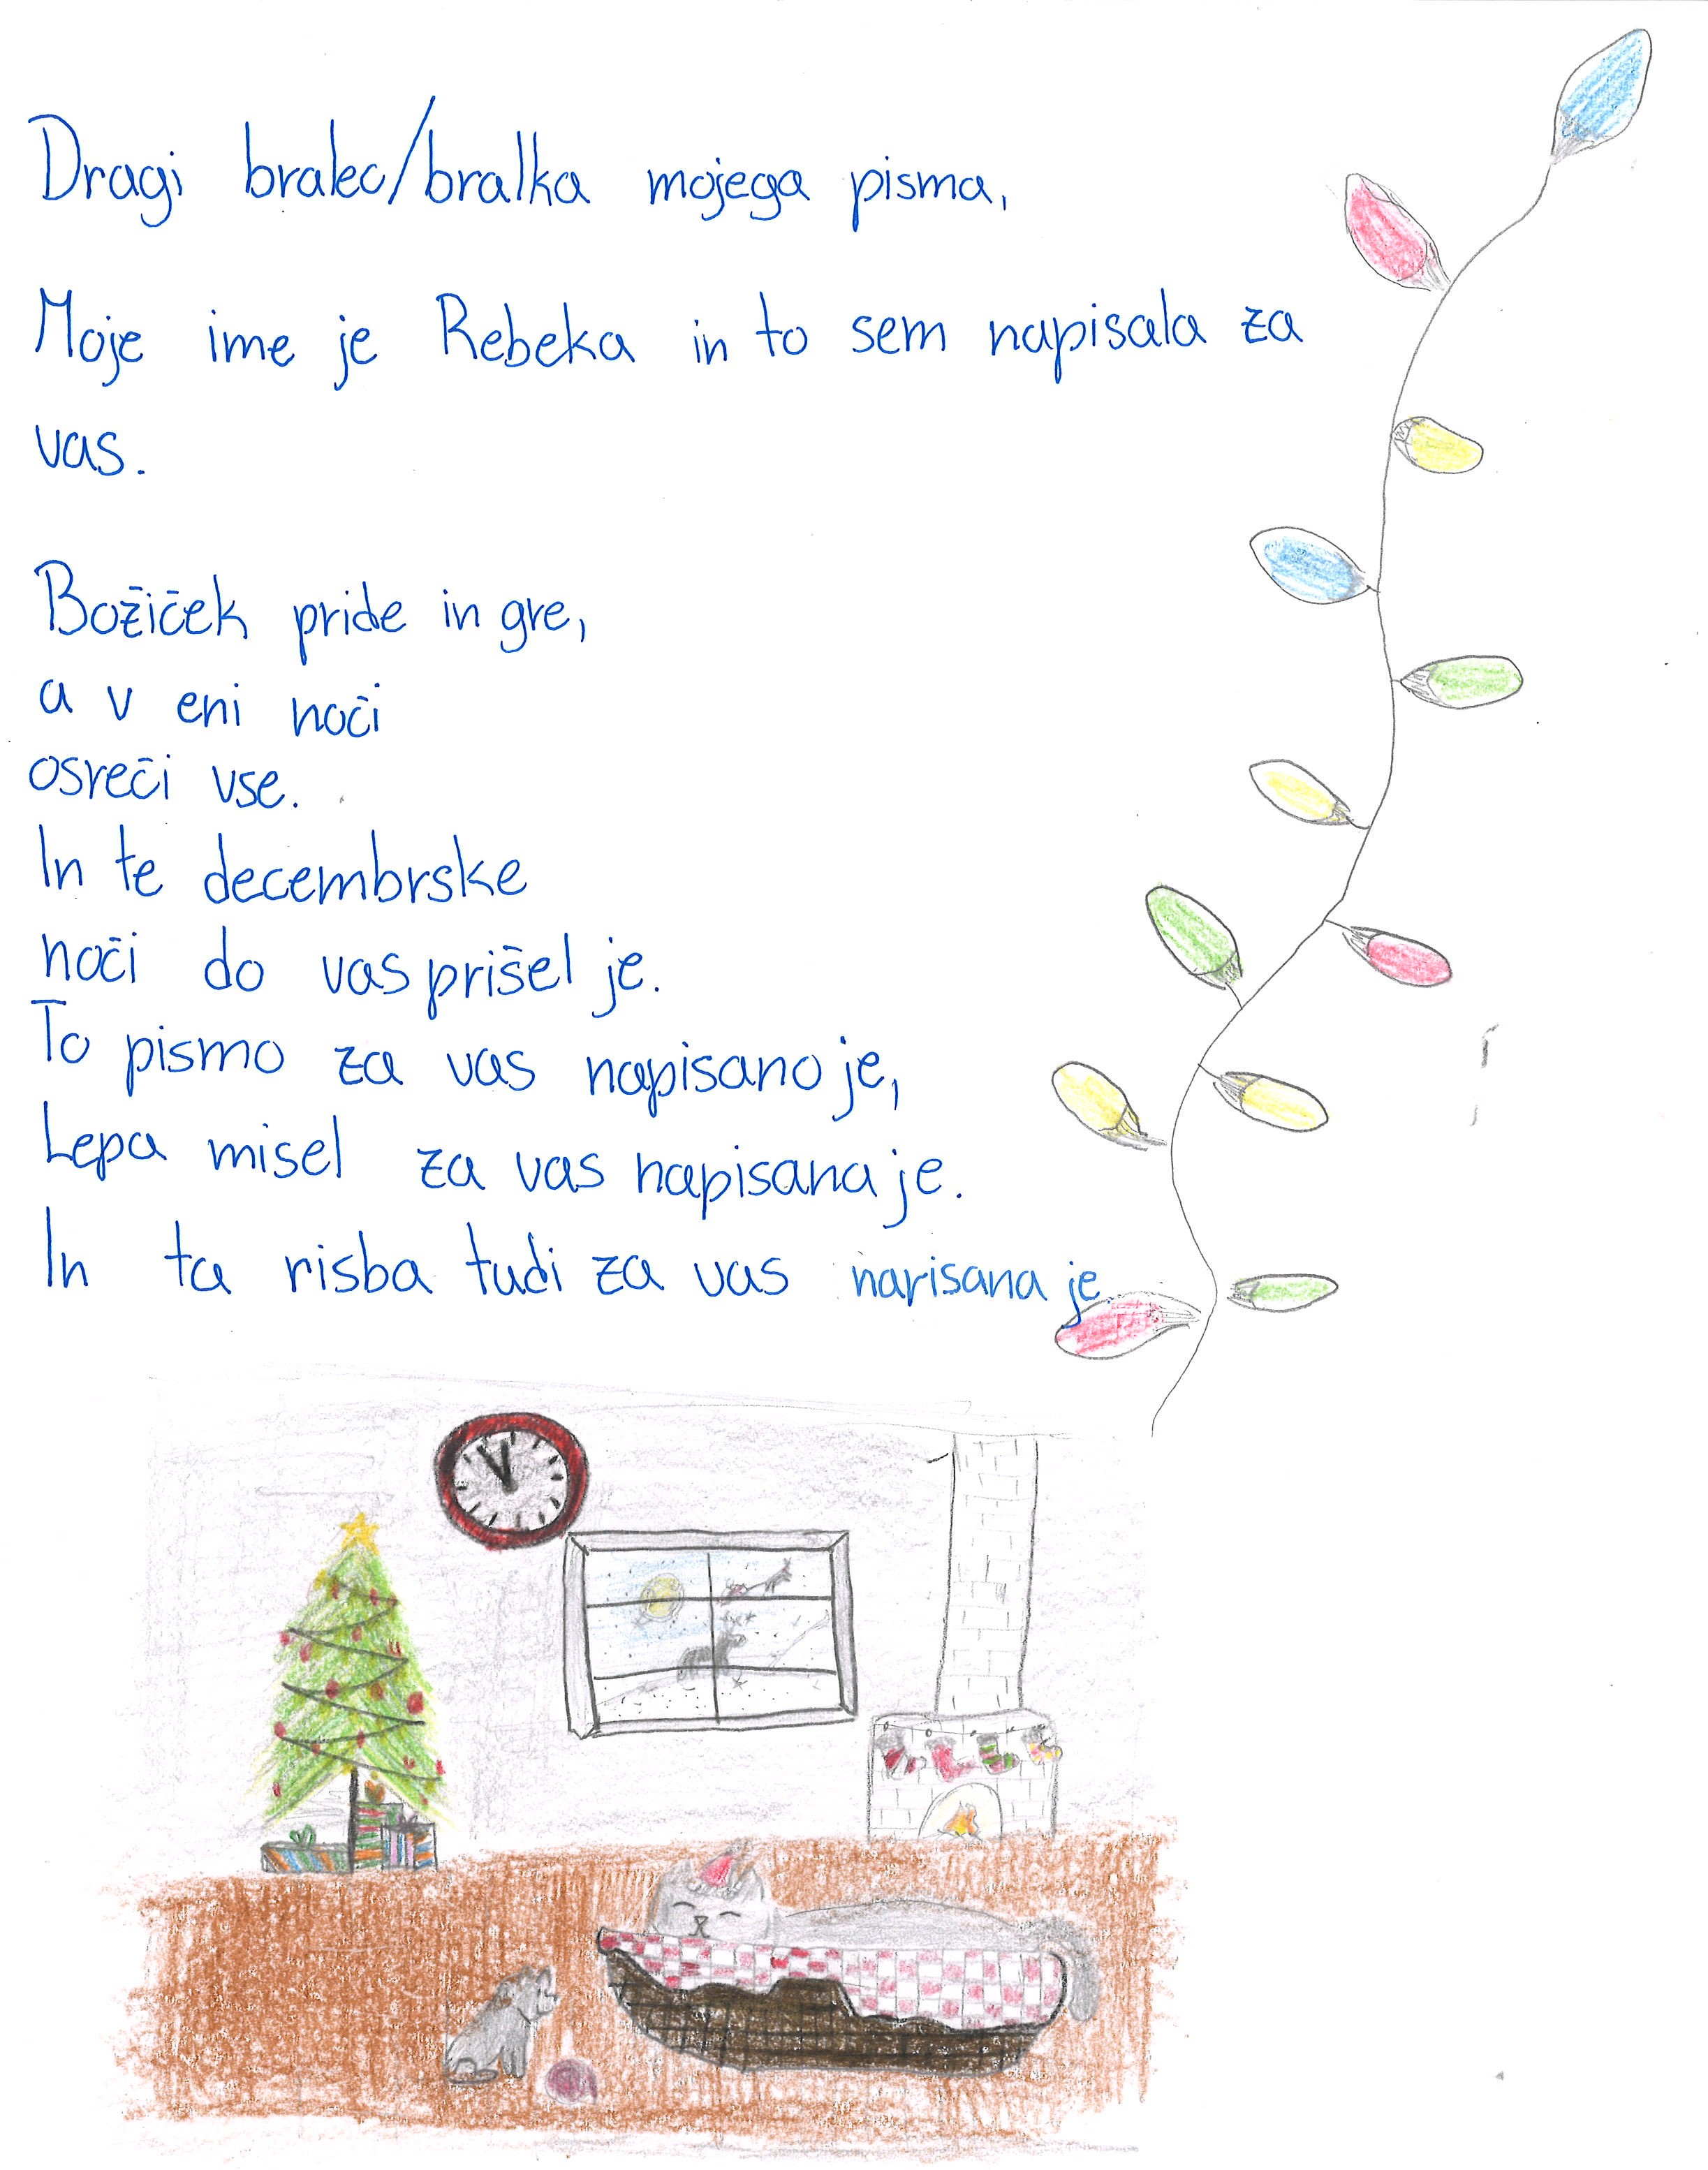 Dragi bralec/bralka mojega pisma,
Moje ime je Rebeka in to sem napisala za
vas.
Božiček pride in gre,
a v eni noči
osreči vse.
In te decembrske
noči do vas prišel je.
To pismo za vas napisano je,
Lepa misel za vas napisana je.
In ta risba tudi za vas narisana je.